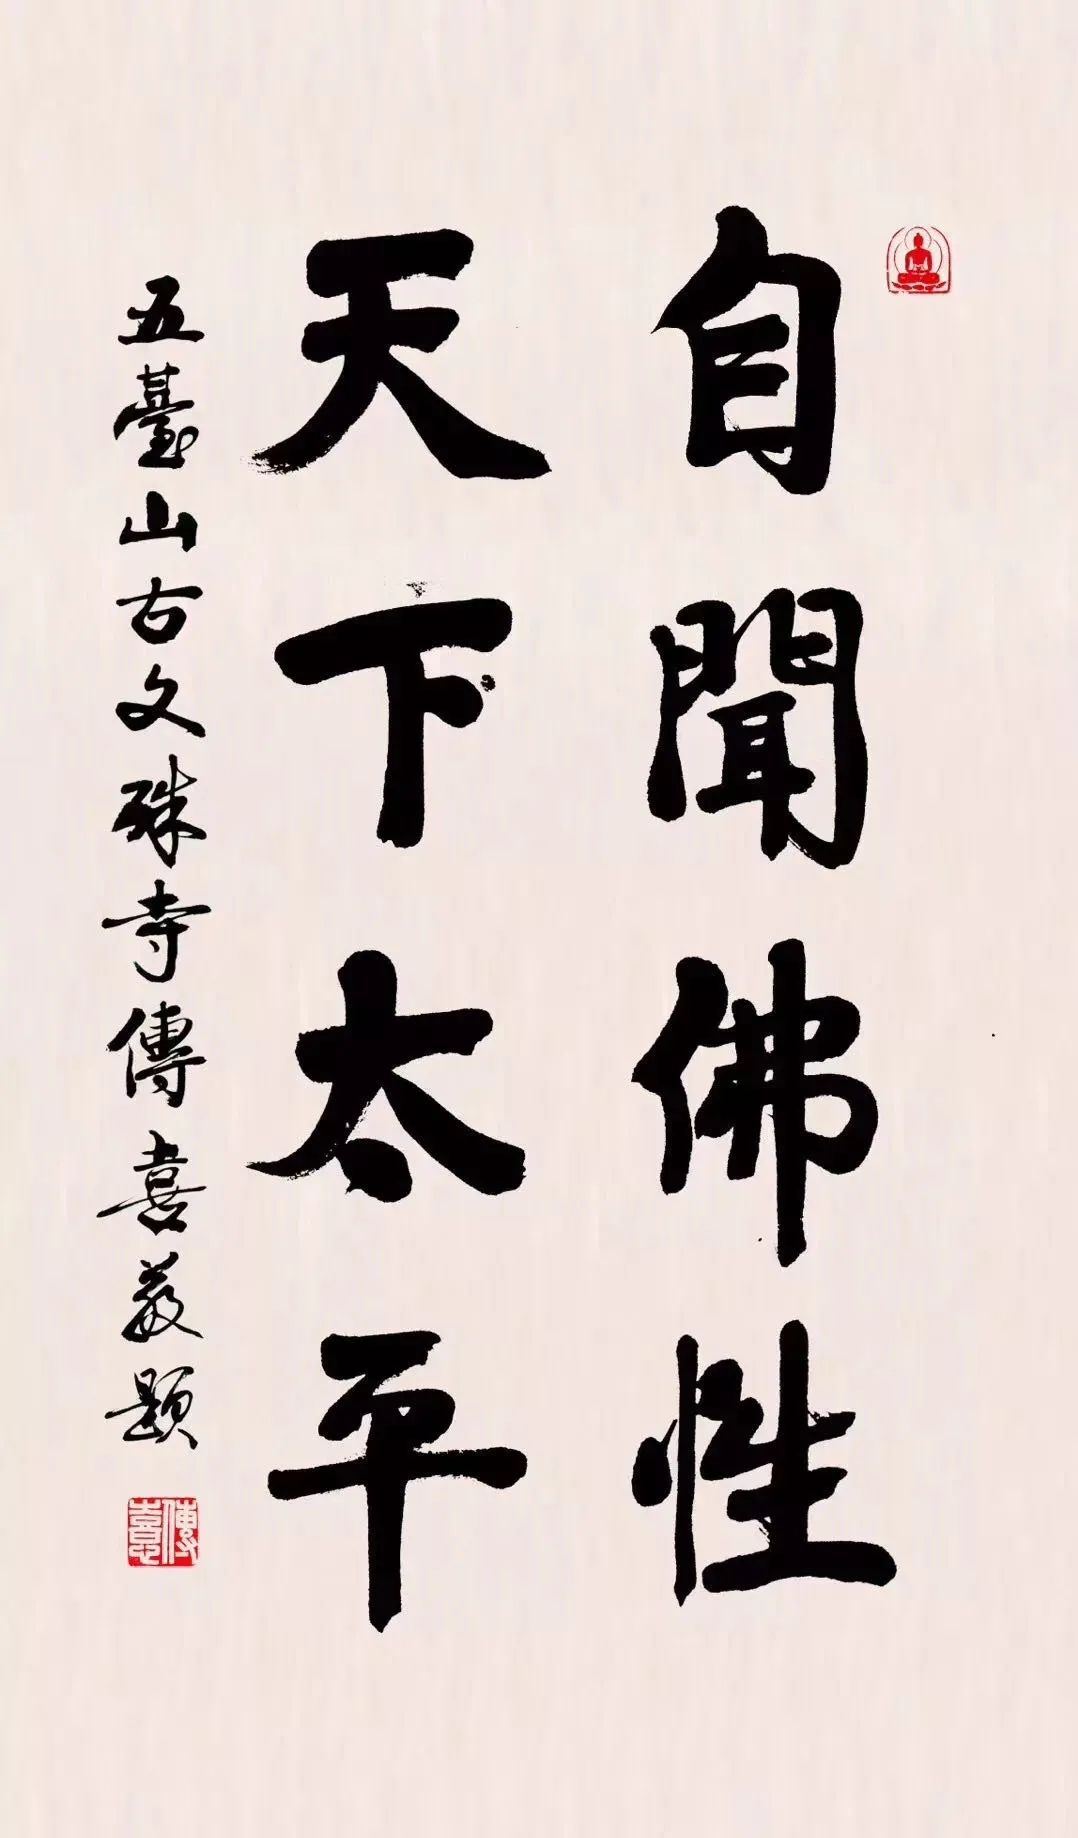 自聞佛性
天下太平
五臺山古文殊寺傳喜敬題
傳喜